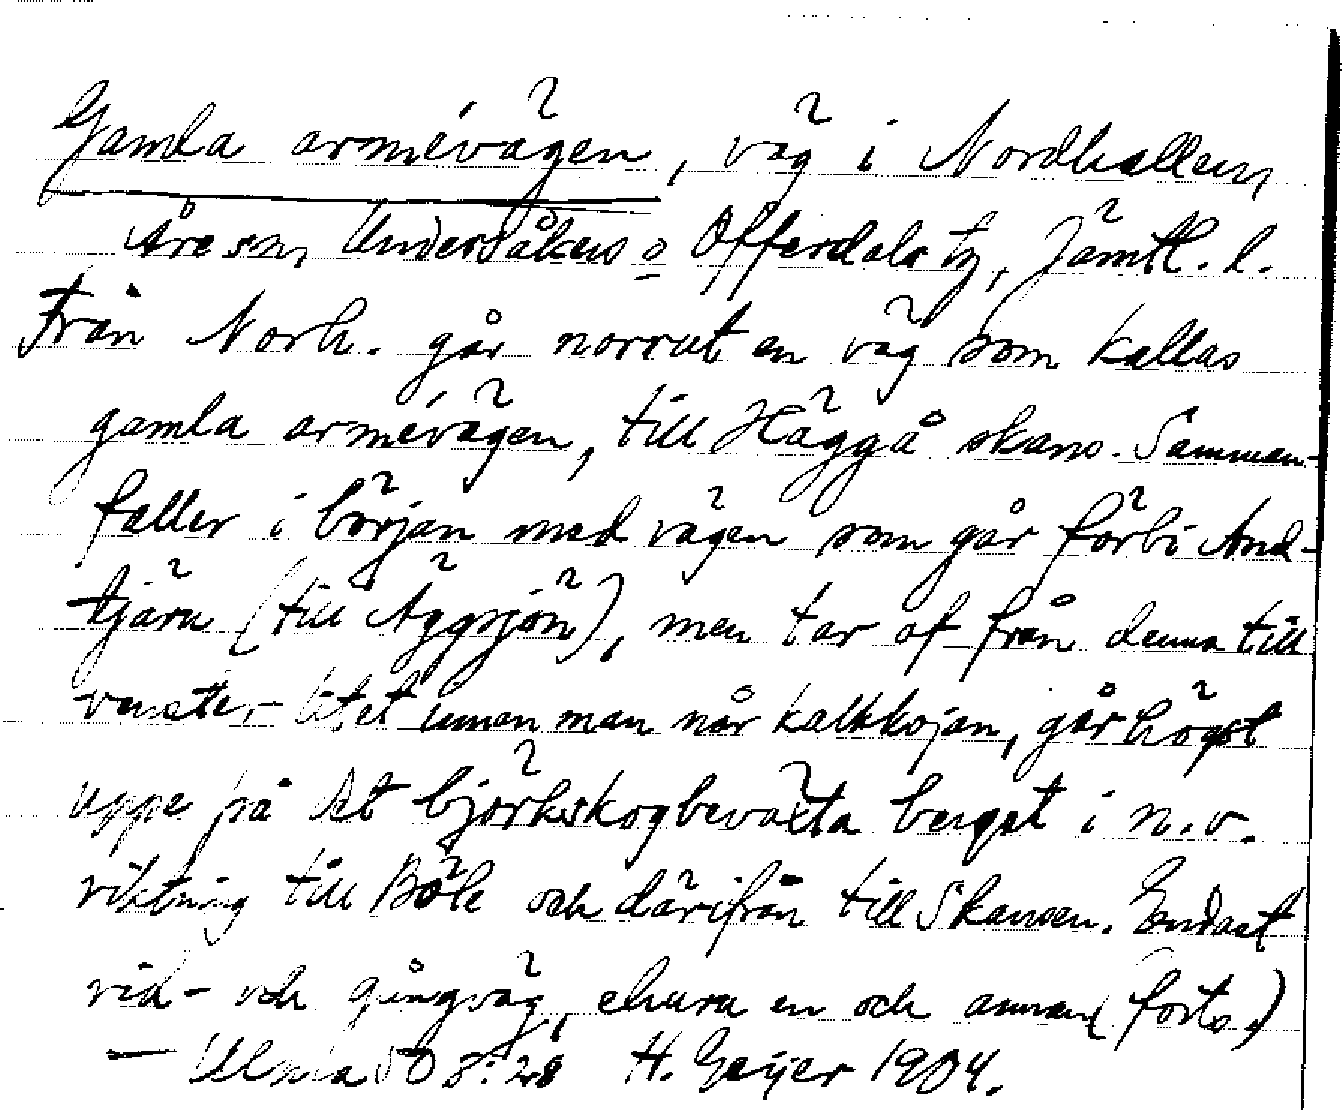 Gamla armévägen, väg i Nordhallen,
Åre sn, Undersåkers o Offerdals tg, Jämtl. l.
Från Norh. går norrut en väg som kallas
gamla armévägen, till Häggå skans. Samman-
faller i början med vägen som går förbi And-
tjärn (till Äggsjön), men tar af från denna till
venster litet innan man når kalkkojan, går högst
uppe på det björkskogbeväxta berget i n.v.
riktning till Böle och därifrån till Skansen. Endast
rid- och gångväg, ehuru en och annan (forts.)
— Ulma 50 8:28 H. Geijer 1904.